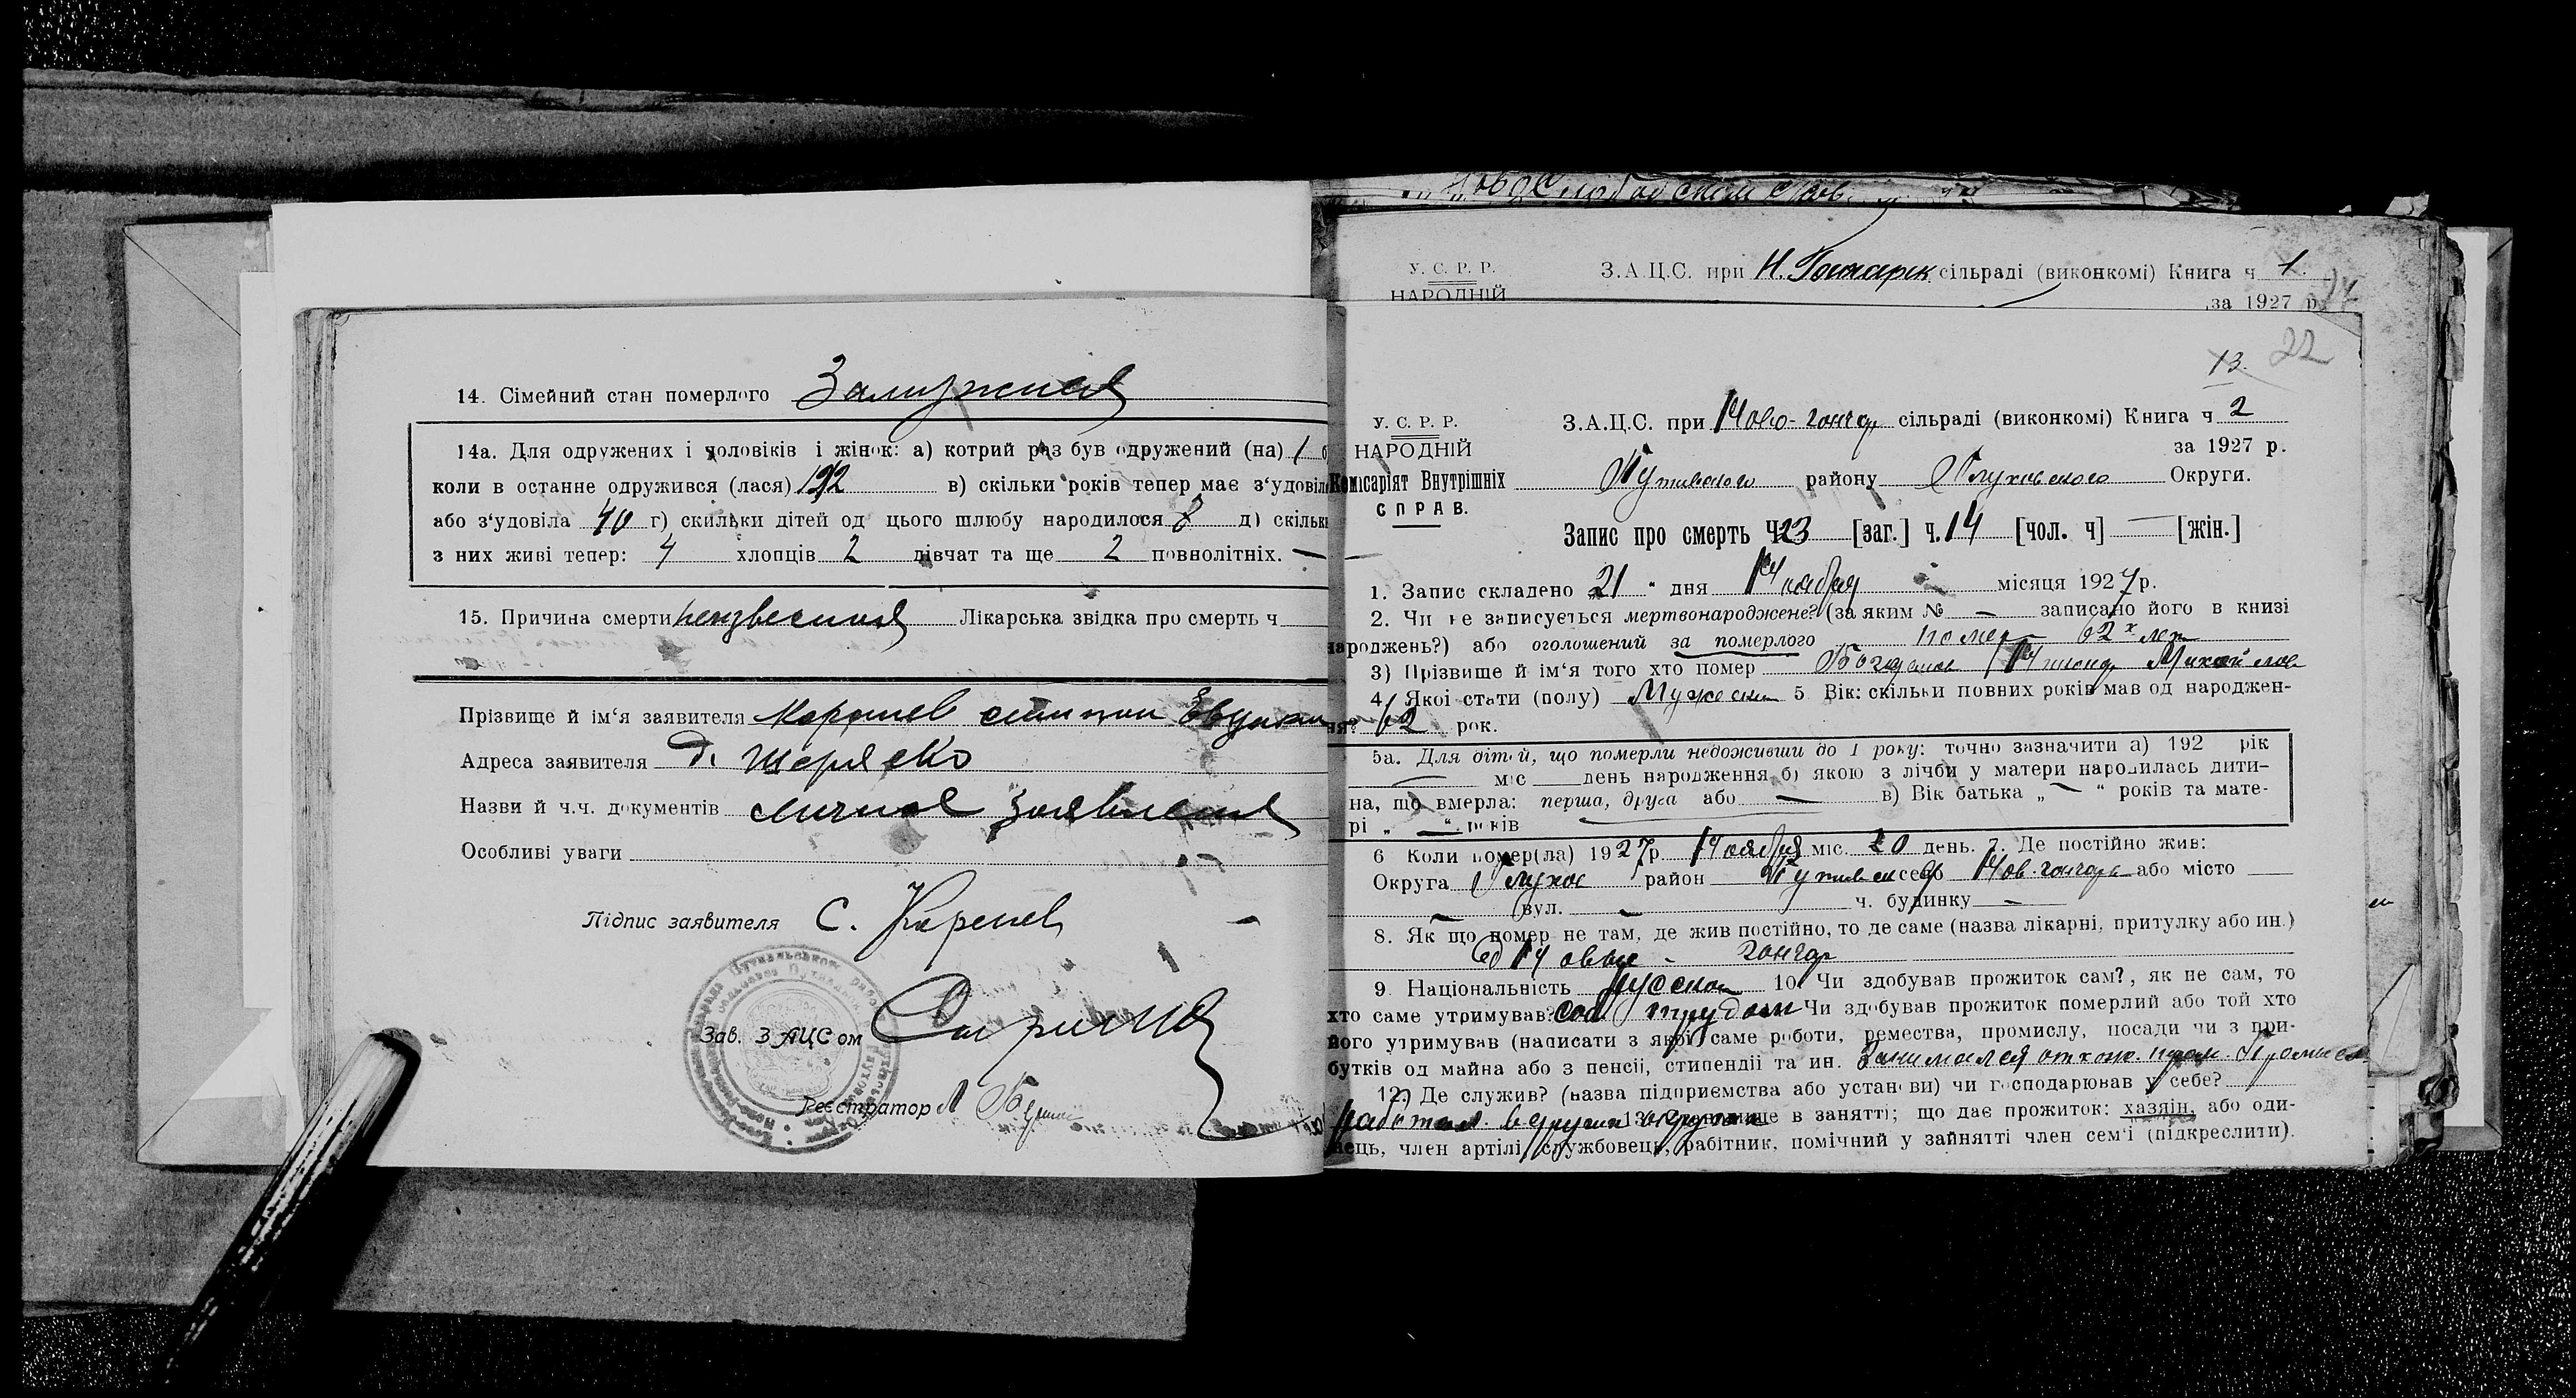 14. Сімейний стан померлого Замужняя
14а. Для одружених і чоловіків і жінок: а) котрий раз був одружений (на) 1
коли в останне одружився (лася) в) скільки років тепер має з'удовіл
або з'удовіла 40 г) скильки дітей од цього шлюбу народилося 8 д) скільк
з них живі тепер: 4 хлопців 2 дівчат та ще 2 повнолітніх. —
15. Причина смерти неизвестная Лікарська звідка про смерть ч
Прізвище й ім'я заявителя
Адреса заявителя д.
Назви й ч.ч. документів личное заявление
Особливі уваги
Підпис заявителя С.
Зав. ЗАЦСом
Реєстратор
У. С. Р. Р. З.А.Ц.С. при Н. Гончарск. сільраді (виконкомі) Книга ч 1.
НАРОДНІЙ за 1927 р.
22
13.
У. С. Р. Р. З.А.Ц.С. при Ново-гончар сільраді (виконкомі) Книга ч 2
НАРОДНІЙ за 1927 р.
Комісаріят Внутрішніх Путивльского району Глуховского Округи.
СПРАВ.
Запис про смерть Ч 23 [заг.] ч. 14 [чол. ч] — [жін.]
1. Запис складено 21 " дня Ноября місяця 1927 р.
2. Чи не записується мертвонароджене? (за яким № — записано його в книзі
народжень?) або оголошений за померлого помер 62х лет
3) Прізвище й ім'я того хто помер Михайлов
4. Якої стати (полу) Мужеский 5 Вік: скільки повних років мав од народжен-
ня? 62 рок.
5а. Для дітей, що померли недоживши до 1 року: точно зазначити а) 192 рік
— міс день народження б) якою з лічби у матери народилась дити-
на, що вмерла: перша, друга або — в) Вік батька „ — “ років та мате-
рі „ — “ років
6 Коли помер(ла) 1927 р. Ноября міс. 20 день. 7. Де постійно жив:
Округа Глухов район Путивльск село Нов. гончары або місто —
— вул. — ч. будинку —
8. Як що помер не там, де жив постійно, то де саме (назва лікарні, притулку або ин.)
Новые - гончар
9. Національність русский 10. Чи здобував прожиток сам?, як не сам, то
хто саме утримував? трудом Чи здобував прожиток померлий або той хто
його утримував (написати з якої саме роботи, ремества, промислу, посади чи з при-
бутків од майна або з пенсії, стипендії та ин. Занимался отхож.
12.) Де служив? (назва підприємства або установи) чи господарював у себе?
работал 13. в занятті; що дає прожиток: хазяїн, або оди-
нець, член артілі, службовець, рабітник, помічний у зайнятті член сем'ї (підкреслити).